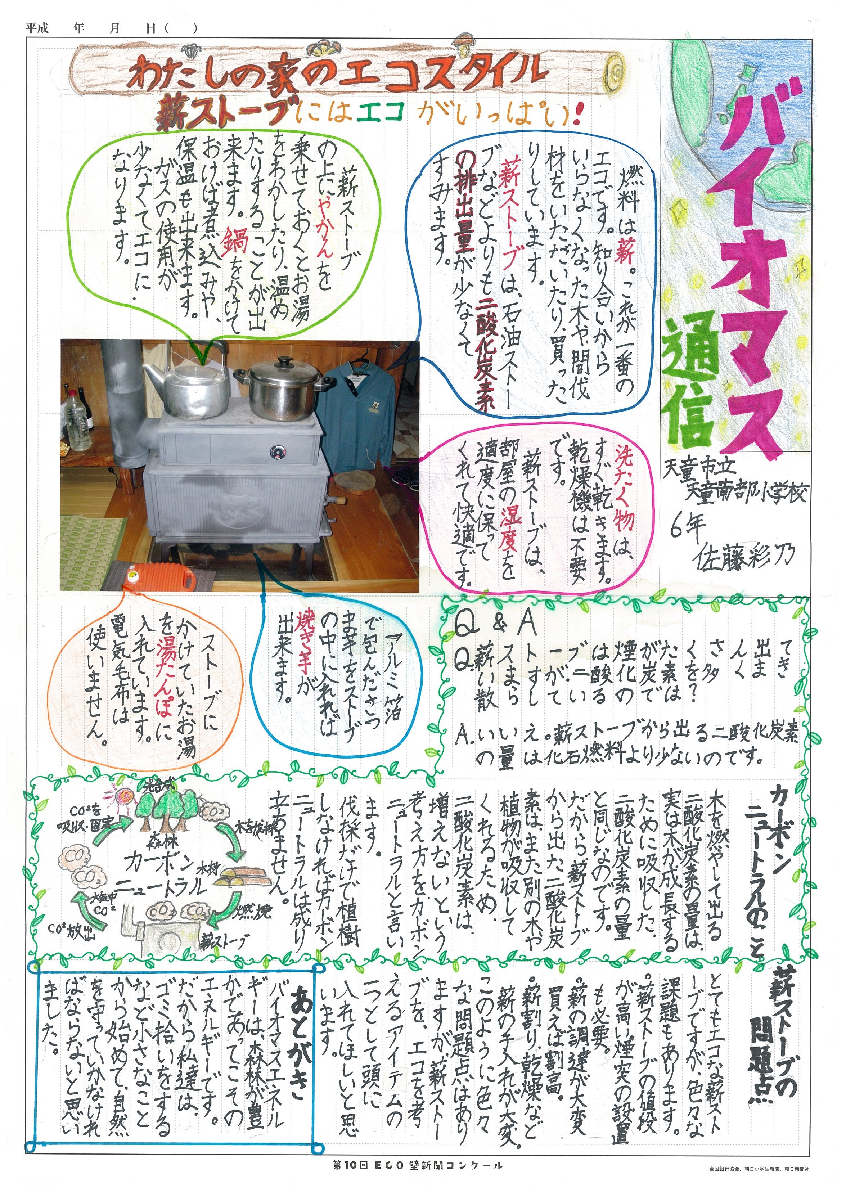 平成　年　月　日（　）
わたしの家のエコスタイル
薪ストーブにはエコがいっぱい！
バイオマス
通信
天童市立
天童南部小学校
6年
佐藤彩乃
燃料は薪。これが一番の
エコです。知り合いから
いらなくなった木や間伐
材をいただいたり、買った
りしています。
薪ストーブは、石油ストー
ブなどよりも二酸化炭素
の排出量が少なくて
すみます。
薪ストーブ
の上にやかんを
乗せておくとお湯
をわかしたり、温め
たりすることが出
来ます。鍋をかけて
おけば煮込みや、
保温も出来ます。
ガスの使用が
少なくてエコに
なります。
洗たく物は、
すぐ乾きます。
乾燥機は不要
です。
薪ストーブは、
部屋の湿度を
適度に保って
くれて快適です。
アルミ箔
で包んださつ
ま芋をストーブ
の中に入れれば
焼き芋が
出来ます。
ストーブに
かけていたお湯
を湯たんぽに
入れています。
電気毛布は
使いません。
Q & A
Q.薪ストーブは煙がたくさん出てき
い
A.いえ。薪ストーブから出る二酸化炭素
の量は化石燃料より少ないのです。
カーボン
ニュートラルのこと
木を燃やして出る
二酸化炭素の量は、
実は木が成長する
ために吸収した、
二酸化炭素の量
と同じなのです。
だから薪ストーブ
から出た二酸化炭
素は、また別の木や
植物が吸収して
くれるため
二酸化炭素は、
増えないという
考え方をカーボン
ニュートラルと言い
ます。
伐採だけで植樹
しなければカーボン
ニュートラルは成り
立ちません。
光合成
CO²を
吸収・固定
森林
カーボン
ニュートラル
木材
燃焼
薪ストーブ
CO²放出
大気中
CO²
薪ストーブの
問題点
とてもエコな薪スト
ーブですが、色々な
課題もあります。
。薪ストーブの値段
が高い煙突の設置
も必要。
。薪の調達が大変
買えば割高。
。薪割り、乾燥など
薪の手入れが大変。
このように色々
な問題点はあり
ますが、薪ストー
ブを、エコを考
えるアイテムの
一つとして頭に
入れてほしいと思
います。
あとがき
バイオマスエネル
ギーは、森林が豊
かであってこその
エネルギーです。
だから私達は、
ゴミ拾いをする
など小さなこと
から始めて、自然
を守っていかなけれ
ばならないと思い
ました。
第10回 ECO壁新聞コンクール